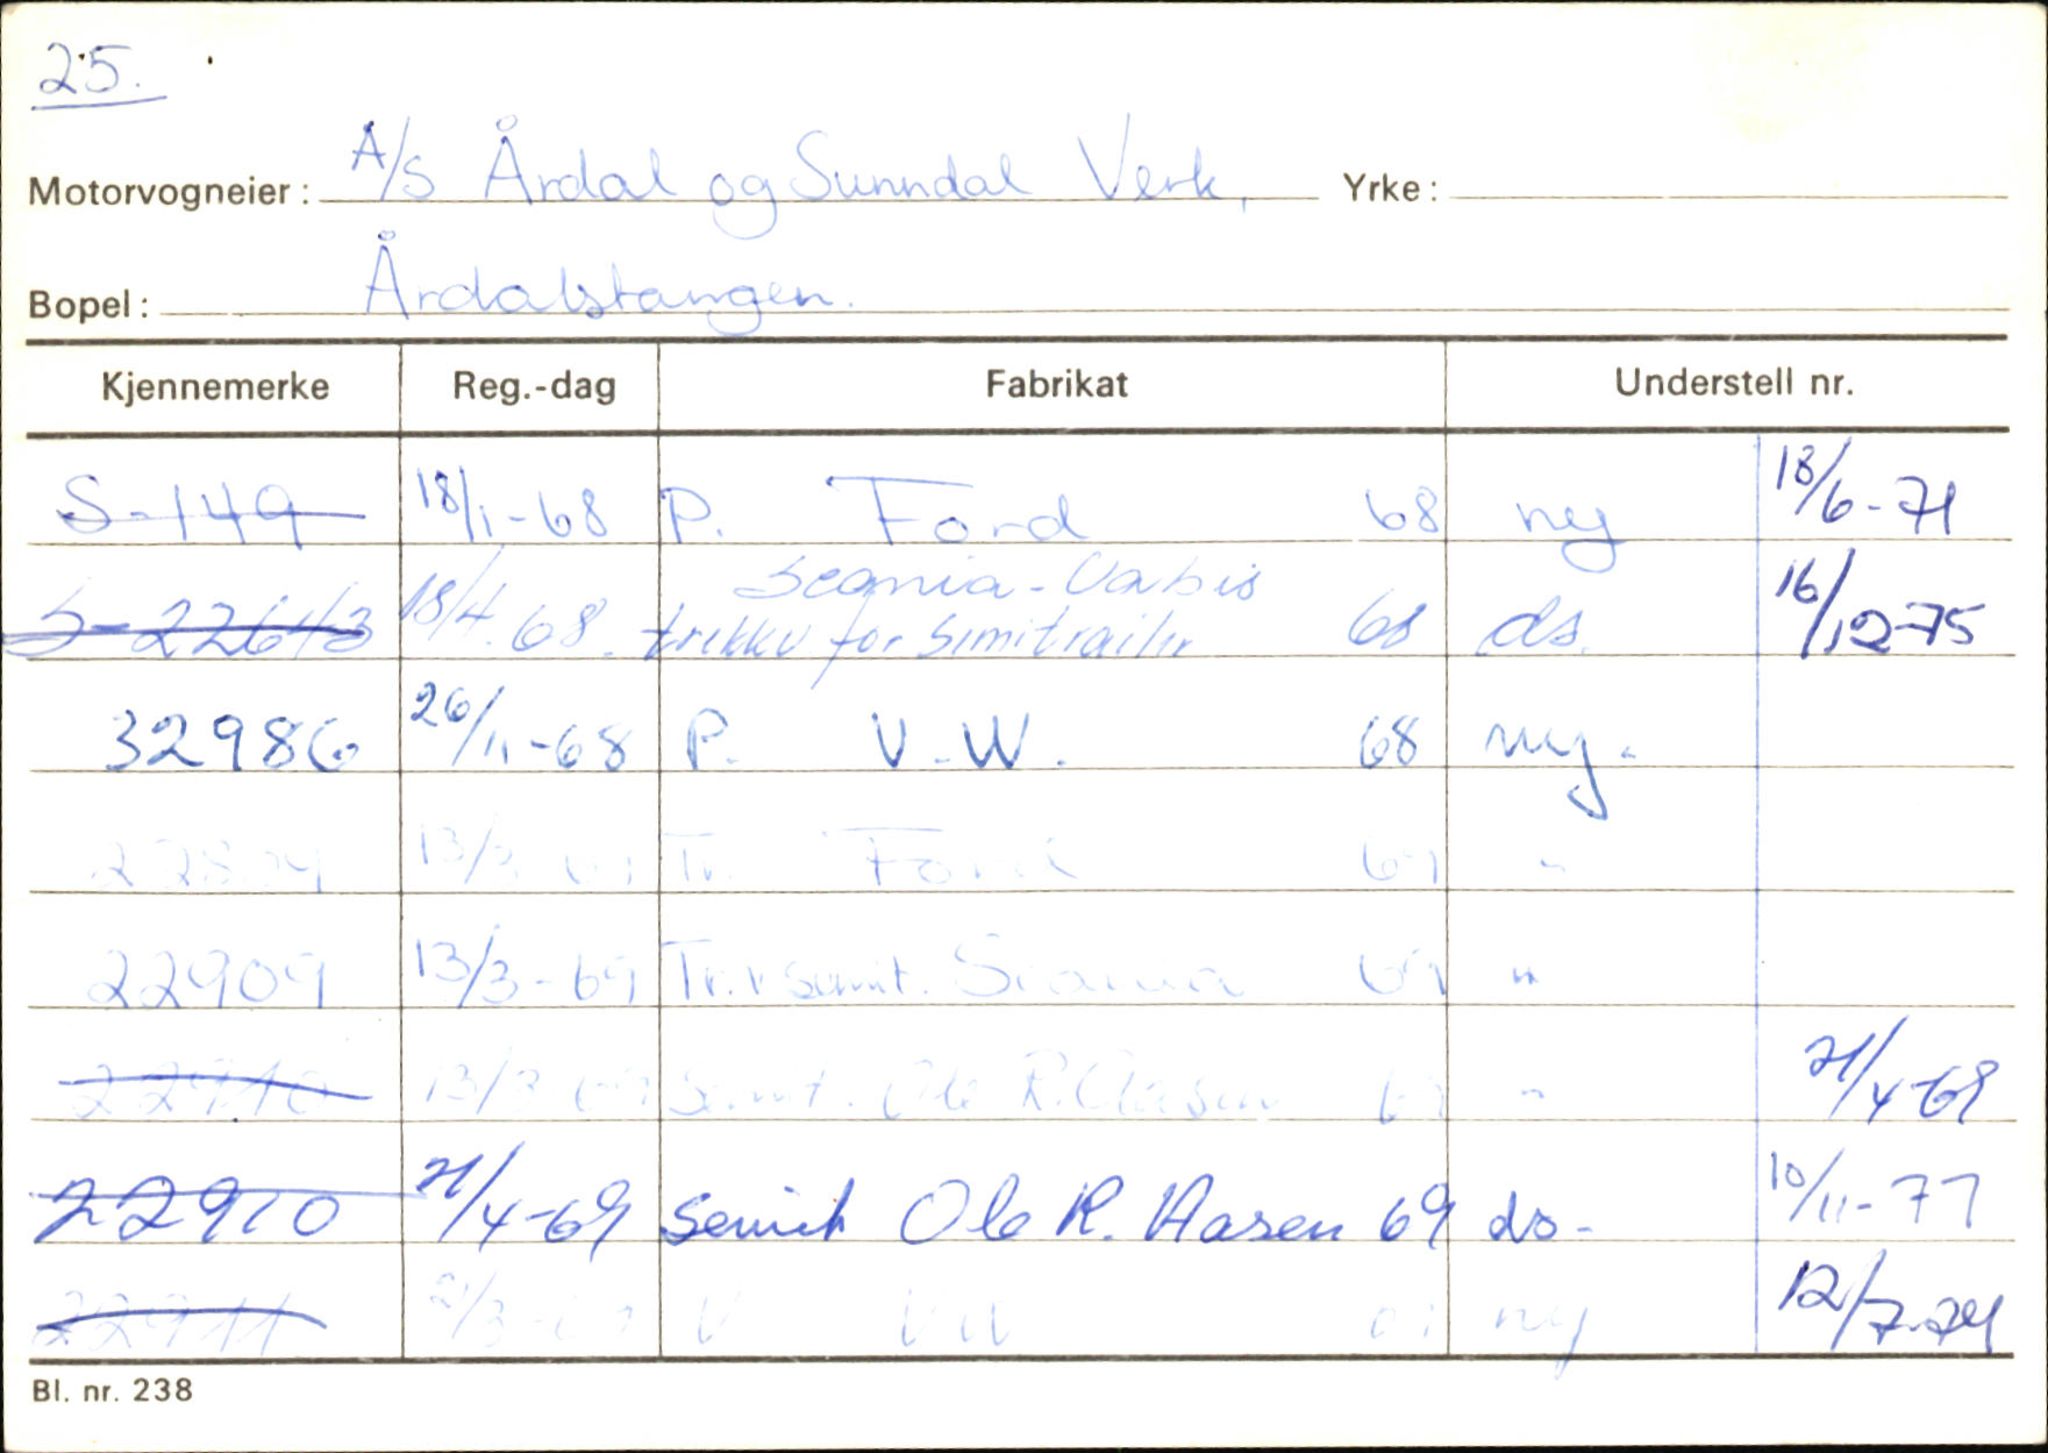 25.
Motorvogneier: A/S Årdal og Sunndal Verk, Yrke:
Bopel: Årdalstangen.
Kjennemerke Reg.-dag Fabrikat Understell nr.
S-149 18/1-68 P. Ford 68 ny 18/6-71
Scania-Vabis
S-22643 18/4.68. trekkv for semitrailer 68 ds. 16/12-75
32986 26/11-68 P. V.W. 68 ny.
13/3 Tr. Ford 69 "
22909 13/3-69 Tr.v semit. Scania 69 "
22910 13/3 69 Semit. Ole R. Aasen 69 " 21/4-69
22910 21/4-69 semit Ole R. Aasen 69 ds- 10/11-77
22911 V VW ny 12/7-74
Bl. nr. 238